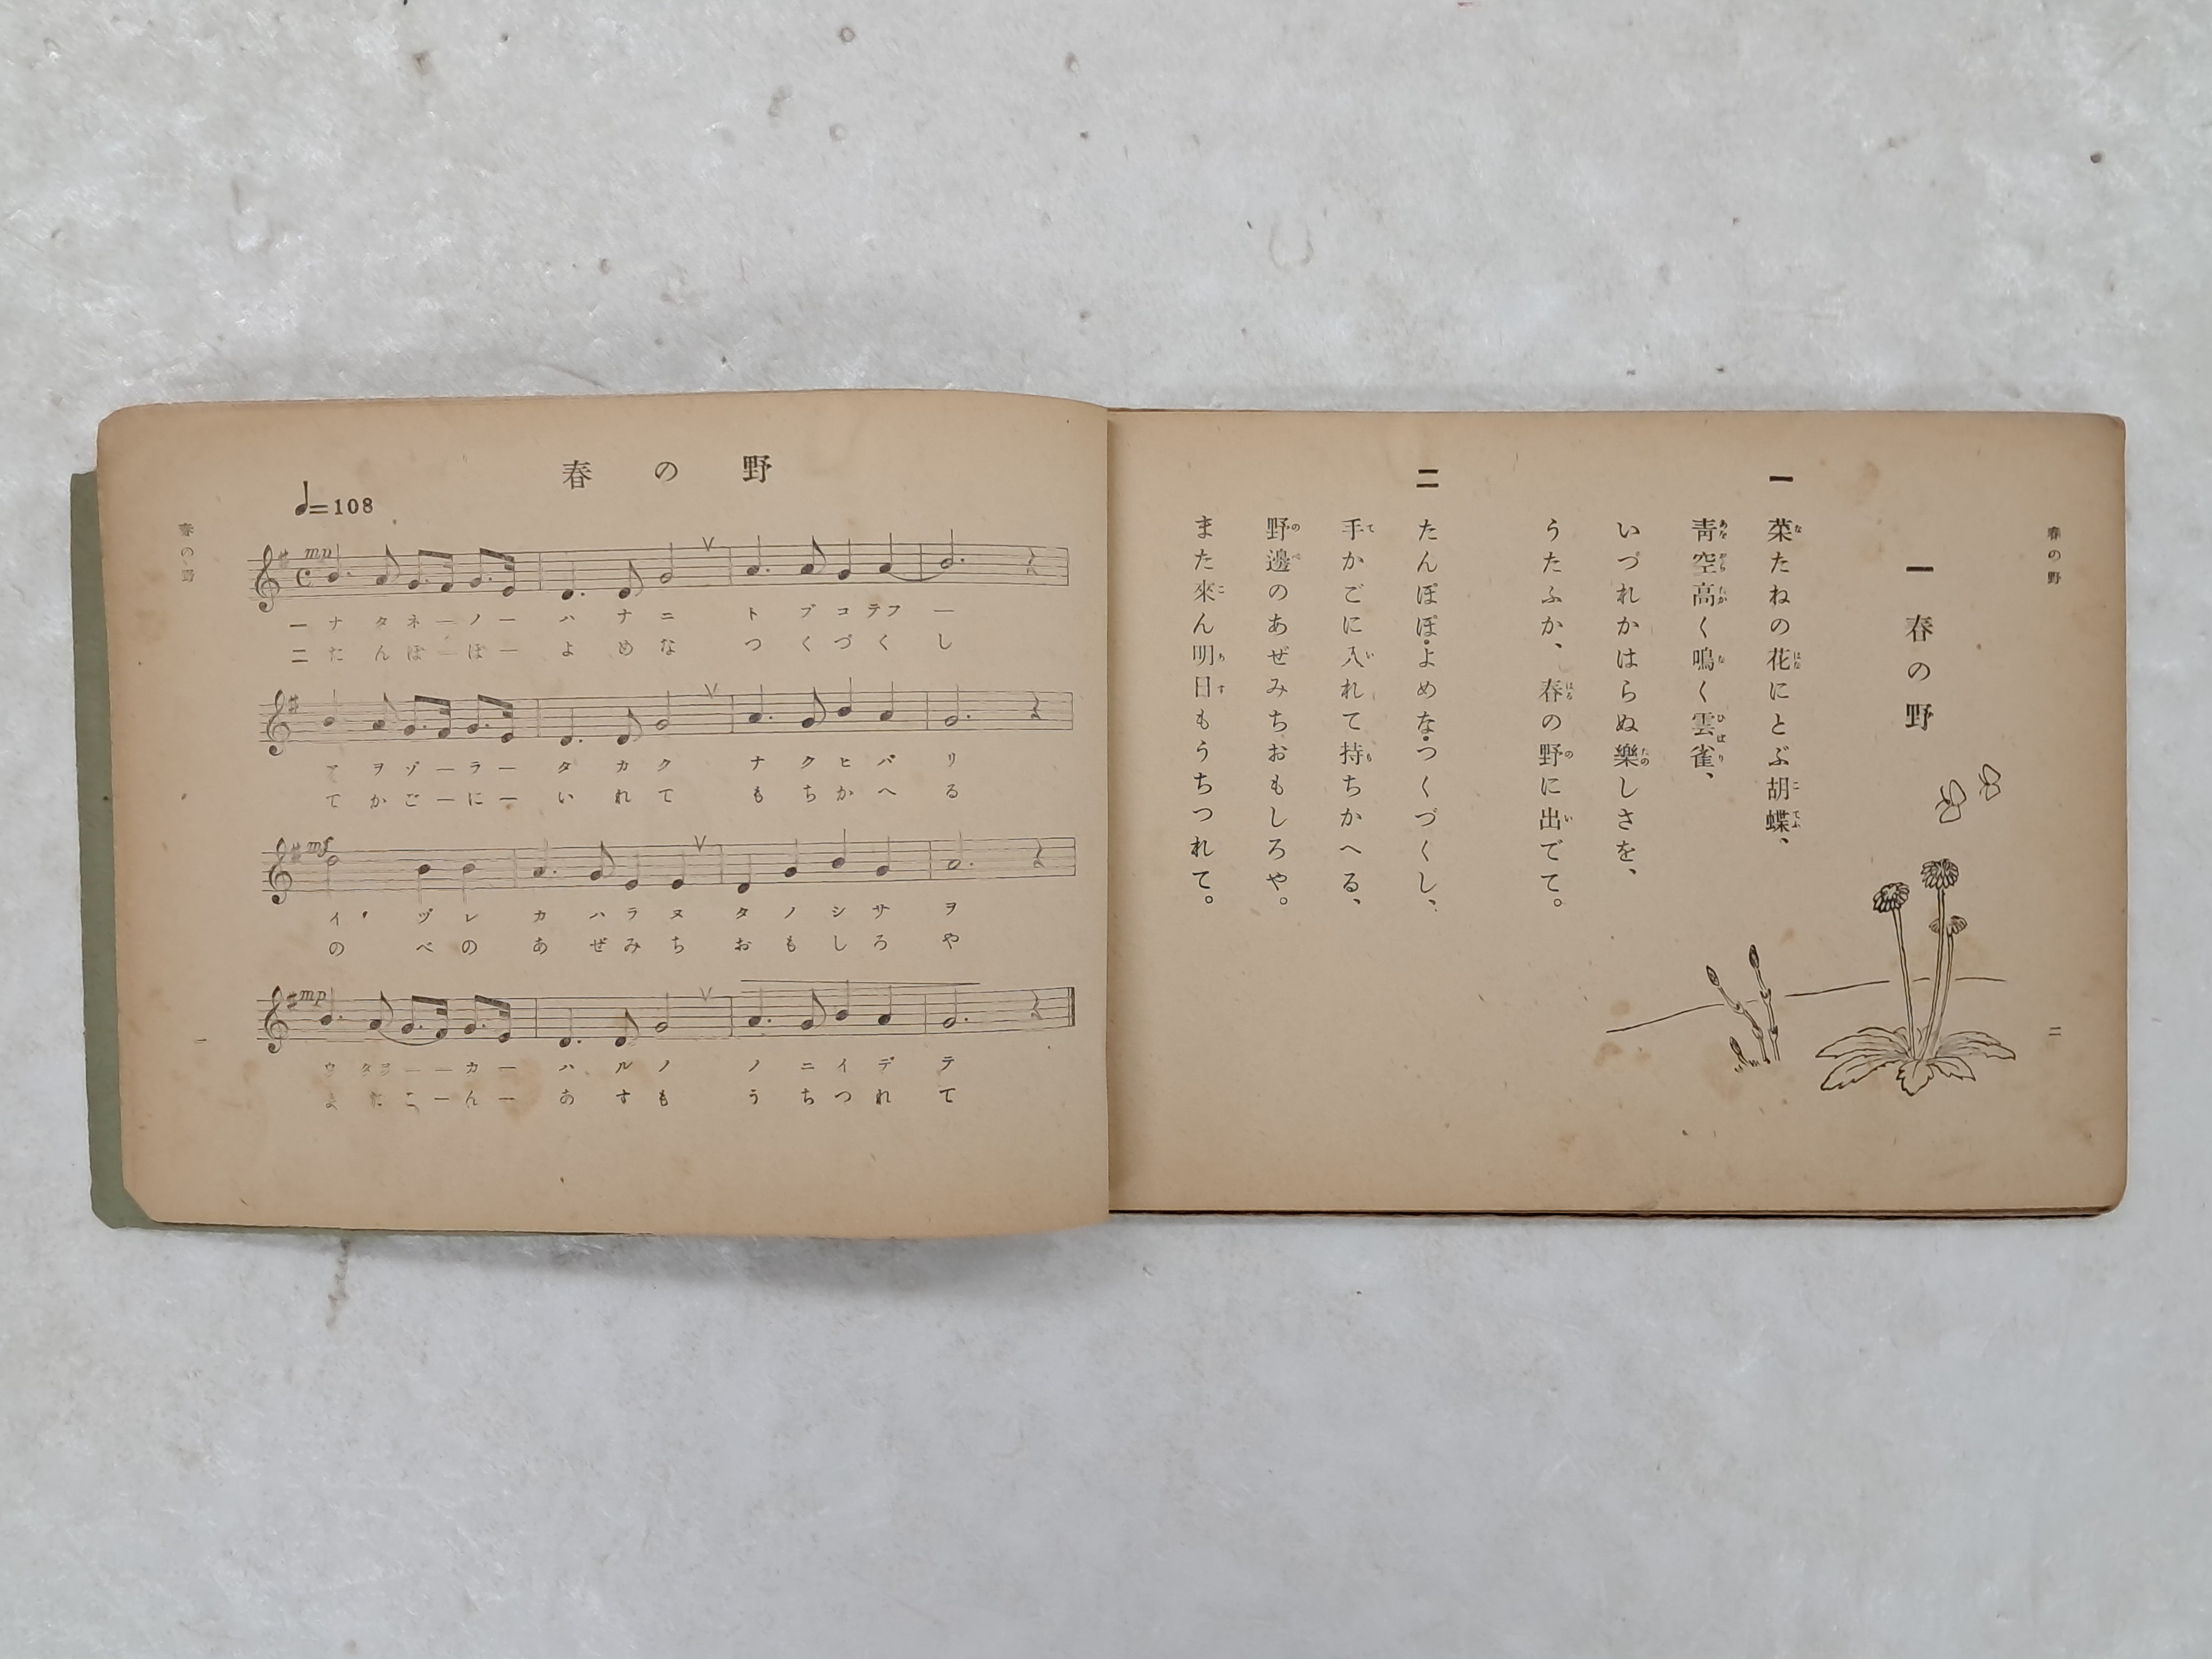 春の野
♩=108
mp
一 ナ タ ネ ー ノ ー ハ ナ ニ ト ブ コ テフ ー
二 た ん ぽ ー ぽ ー よ め な つ く づ く し
ア ヲ ゾ ー ラ ー タ カ ク ナ ク ヒ バ リ
て か ご ー に ー い れ て も ち か へ る
mf
イ ヅ レ カ ハ ラ ヌ タ ノ シ サ ヲ
の べ の あ ぜ み ち お も し ろ や
mp
ウ タ フ ー ー カ ー ハ ル ノ ノ ニ イ デ テ
ま た こ ー ん ー あ す も う ち つ れ て
春の野
一
春の野
二
一 春の野
一
菜たねの花にとぶ胡蝶、
靑空高く鳴く雲雀、
いづれかはらぬ樂しさを、
うたふか、春の野に出でて。
二
たんぽぽ・よめな・つくづくし、
手かごに入れて持ちかへる、
野邊のあぜみちおもしろや。
また來ん明日もうちつれて。